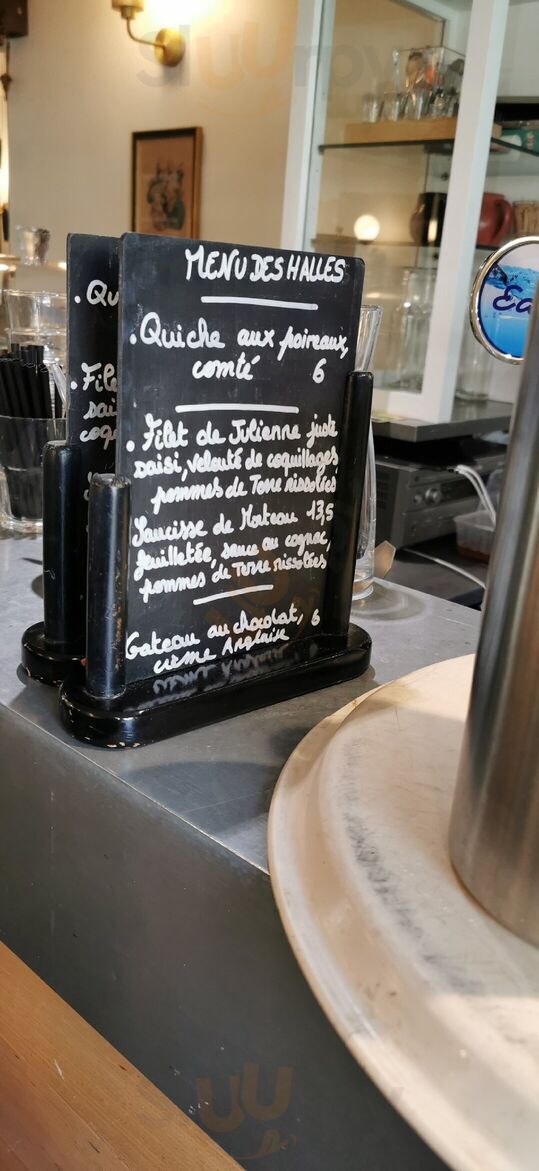 MENU DES HALLES
. Quiche aux poireaux,
comté 6
. Filet de Julienne juste
saisi, velouté de coquillages
pommes de Terre rissolées
Saucisse de Morteau 13,5
feuilletée, sauce au cognac,
pommes de Terre rissolées
Gateau au chocolat, 6
crème Anglaise
. Qu
. File
sai
coq
Sluurpy